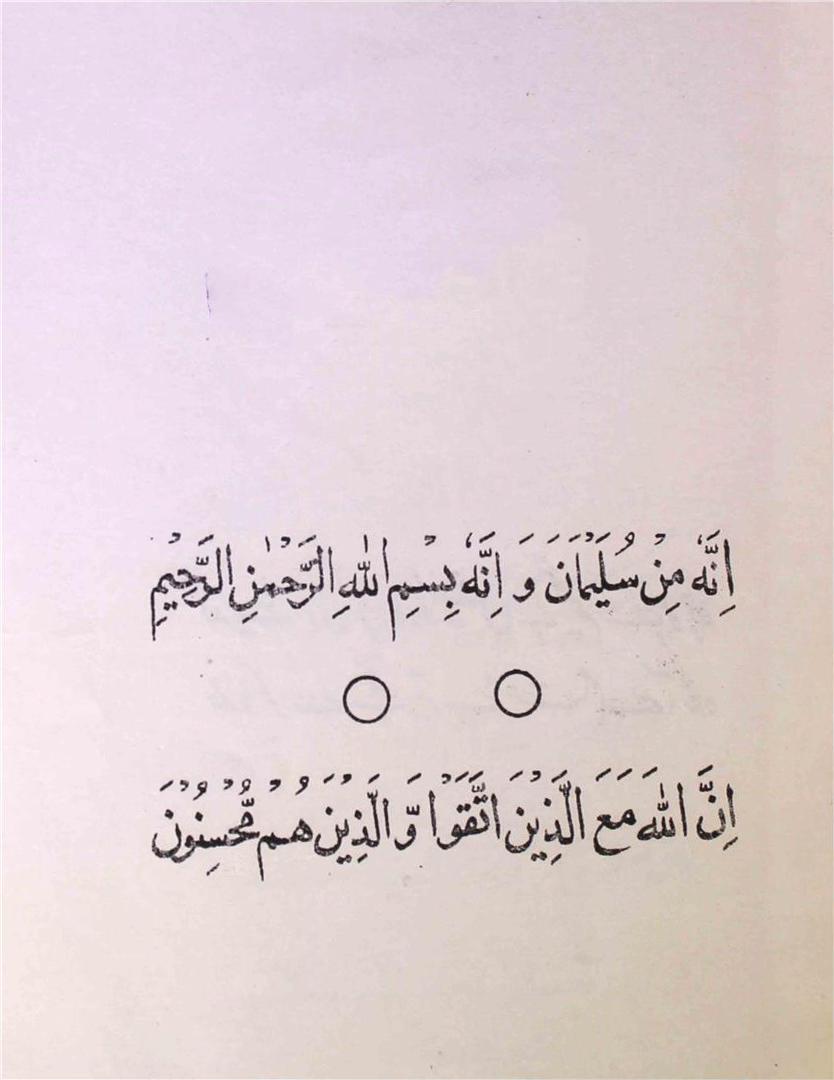 اِنَّهٗ مِنْ سُلَيْمَانَ وَ اِنَّهٗ بِسْمِ اللّٰهِ الرَّحْمٰنِ الرَّحِيْمِ
اِنَّ اللّٰهَ مَعَ الَّذِيْنَ اتَّقَوْا وَّ الَّذِيْنَ هُمْ مُّحْسِنُوْنَ